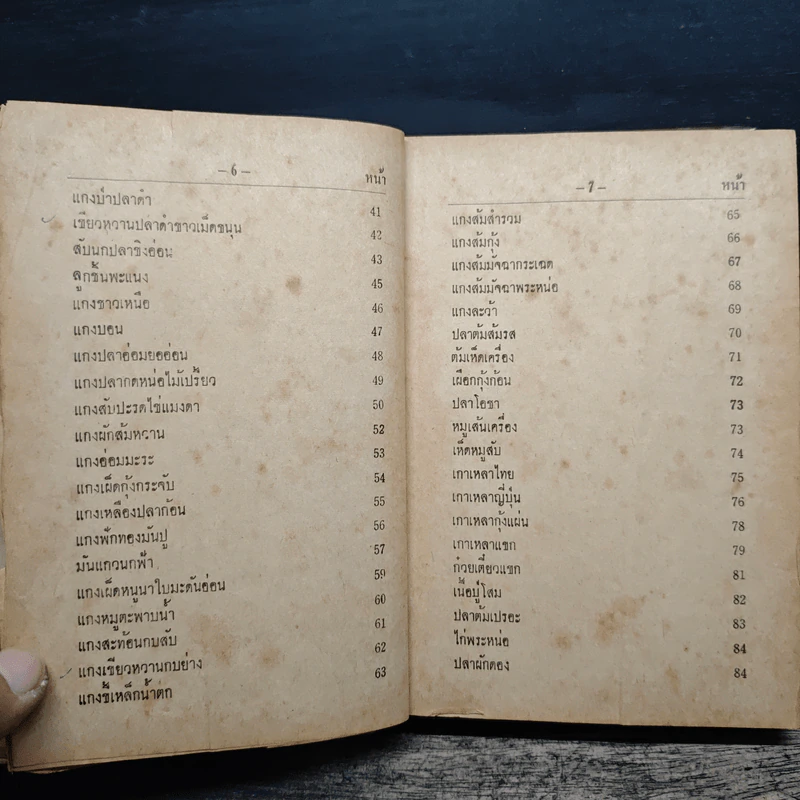 – 6 –
หน้า
แกงป่าปลาดำ 41
เขียวหวานปลาดำขาวเม็ดขนุน 42
สับนกปลาขิงอ่อน 43
ลูกชิ้นพะแนง 45
แกงชาวเหนือ 46
แกงบอน 47
แกงปลาอ่อมยออ่อน 48
แกงปลากดหน่อไม้เปรี้ยว 49
แกงสับปะรดไข่แมงดา 50
แกงผักส้มหวาน 52
แกงอ่อมมะระ 53
แกงเผ็ดกุ้งกระจับ 54
แกงเหลืองปลาก้อน 55
แกงฟักทองมันปู 56
มันแกวนกฟ้า 57
แกงเผ็ดหนูนาใบมะดันอ่อน 59
แกงหมูตะพาบน้ำ 60
แกงสะท้อนกบสับ 61
แกงเขียวหวานกบย่าง 62
แกงขี้เหล็กน้ำตก 63
– 7 –
หน้า
แกงส้มสำรวม 65
แกงส้มกุ้ง 66
แกงส้มมัจฉากระเฉด 67
แกงส้มมัจฉาพระหน่อ 68
แกงละว้า 69
ปลาต้มส้มรส 70
ต้มเห็ดเครื่อง 71
เผือกกุ้งก้อน 72
ปลาโอชา 73
หมูเส้นเครื่อง 73
เห็ดหมูสับ 74
เกาเหลาไทย 75
เกาเหลาญี่ปุ่น 76
เกาเหลากุ้งแผ่น 78
เกาเหลาแขก 79
ก๋วยเตี๋ยวแขก 81
เนื้อปู่โสม 82
ปลาต้มเปรอะ 83
ไก่พระหน่อ 84
ปลาผักดอง 84